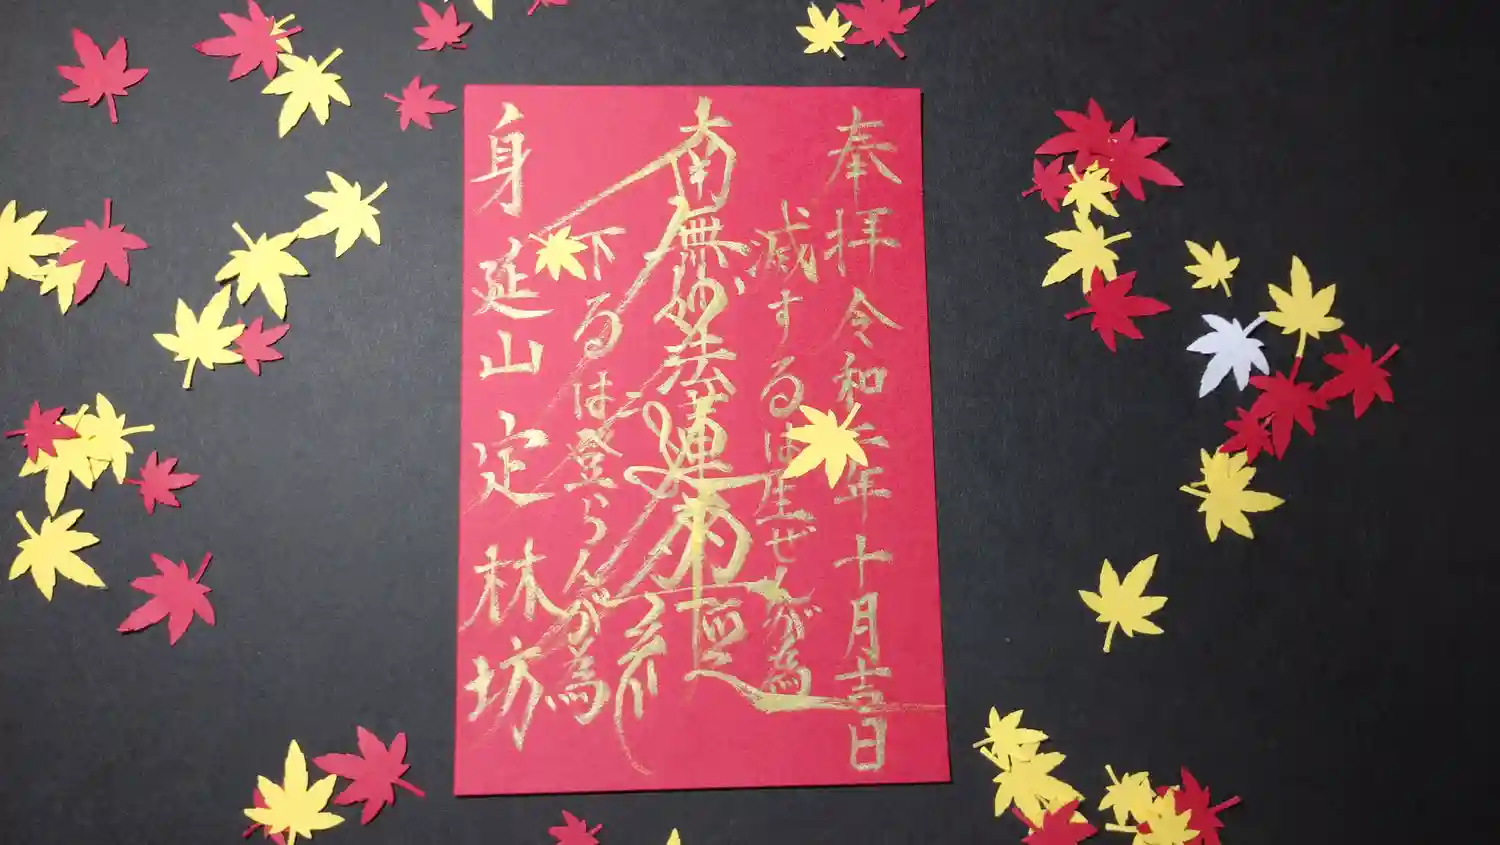 奉拝 令和二年 十月吉日
滅するは生ぜんが為
南無妙法蓮華経
下るは登らんが為
身延山 定林坊